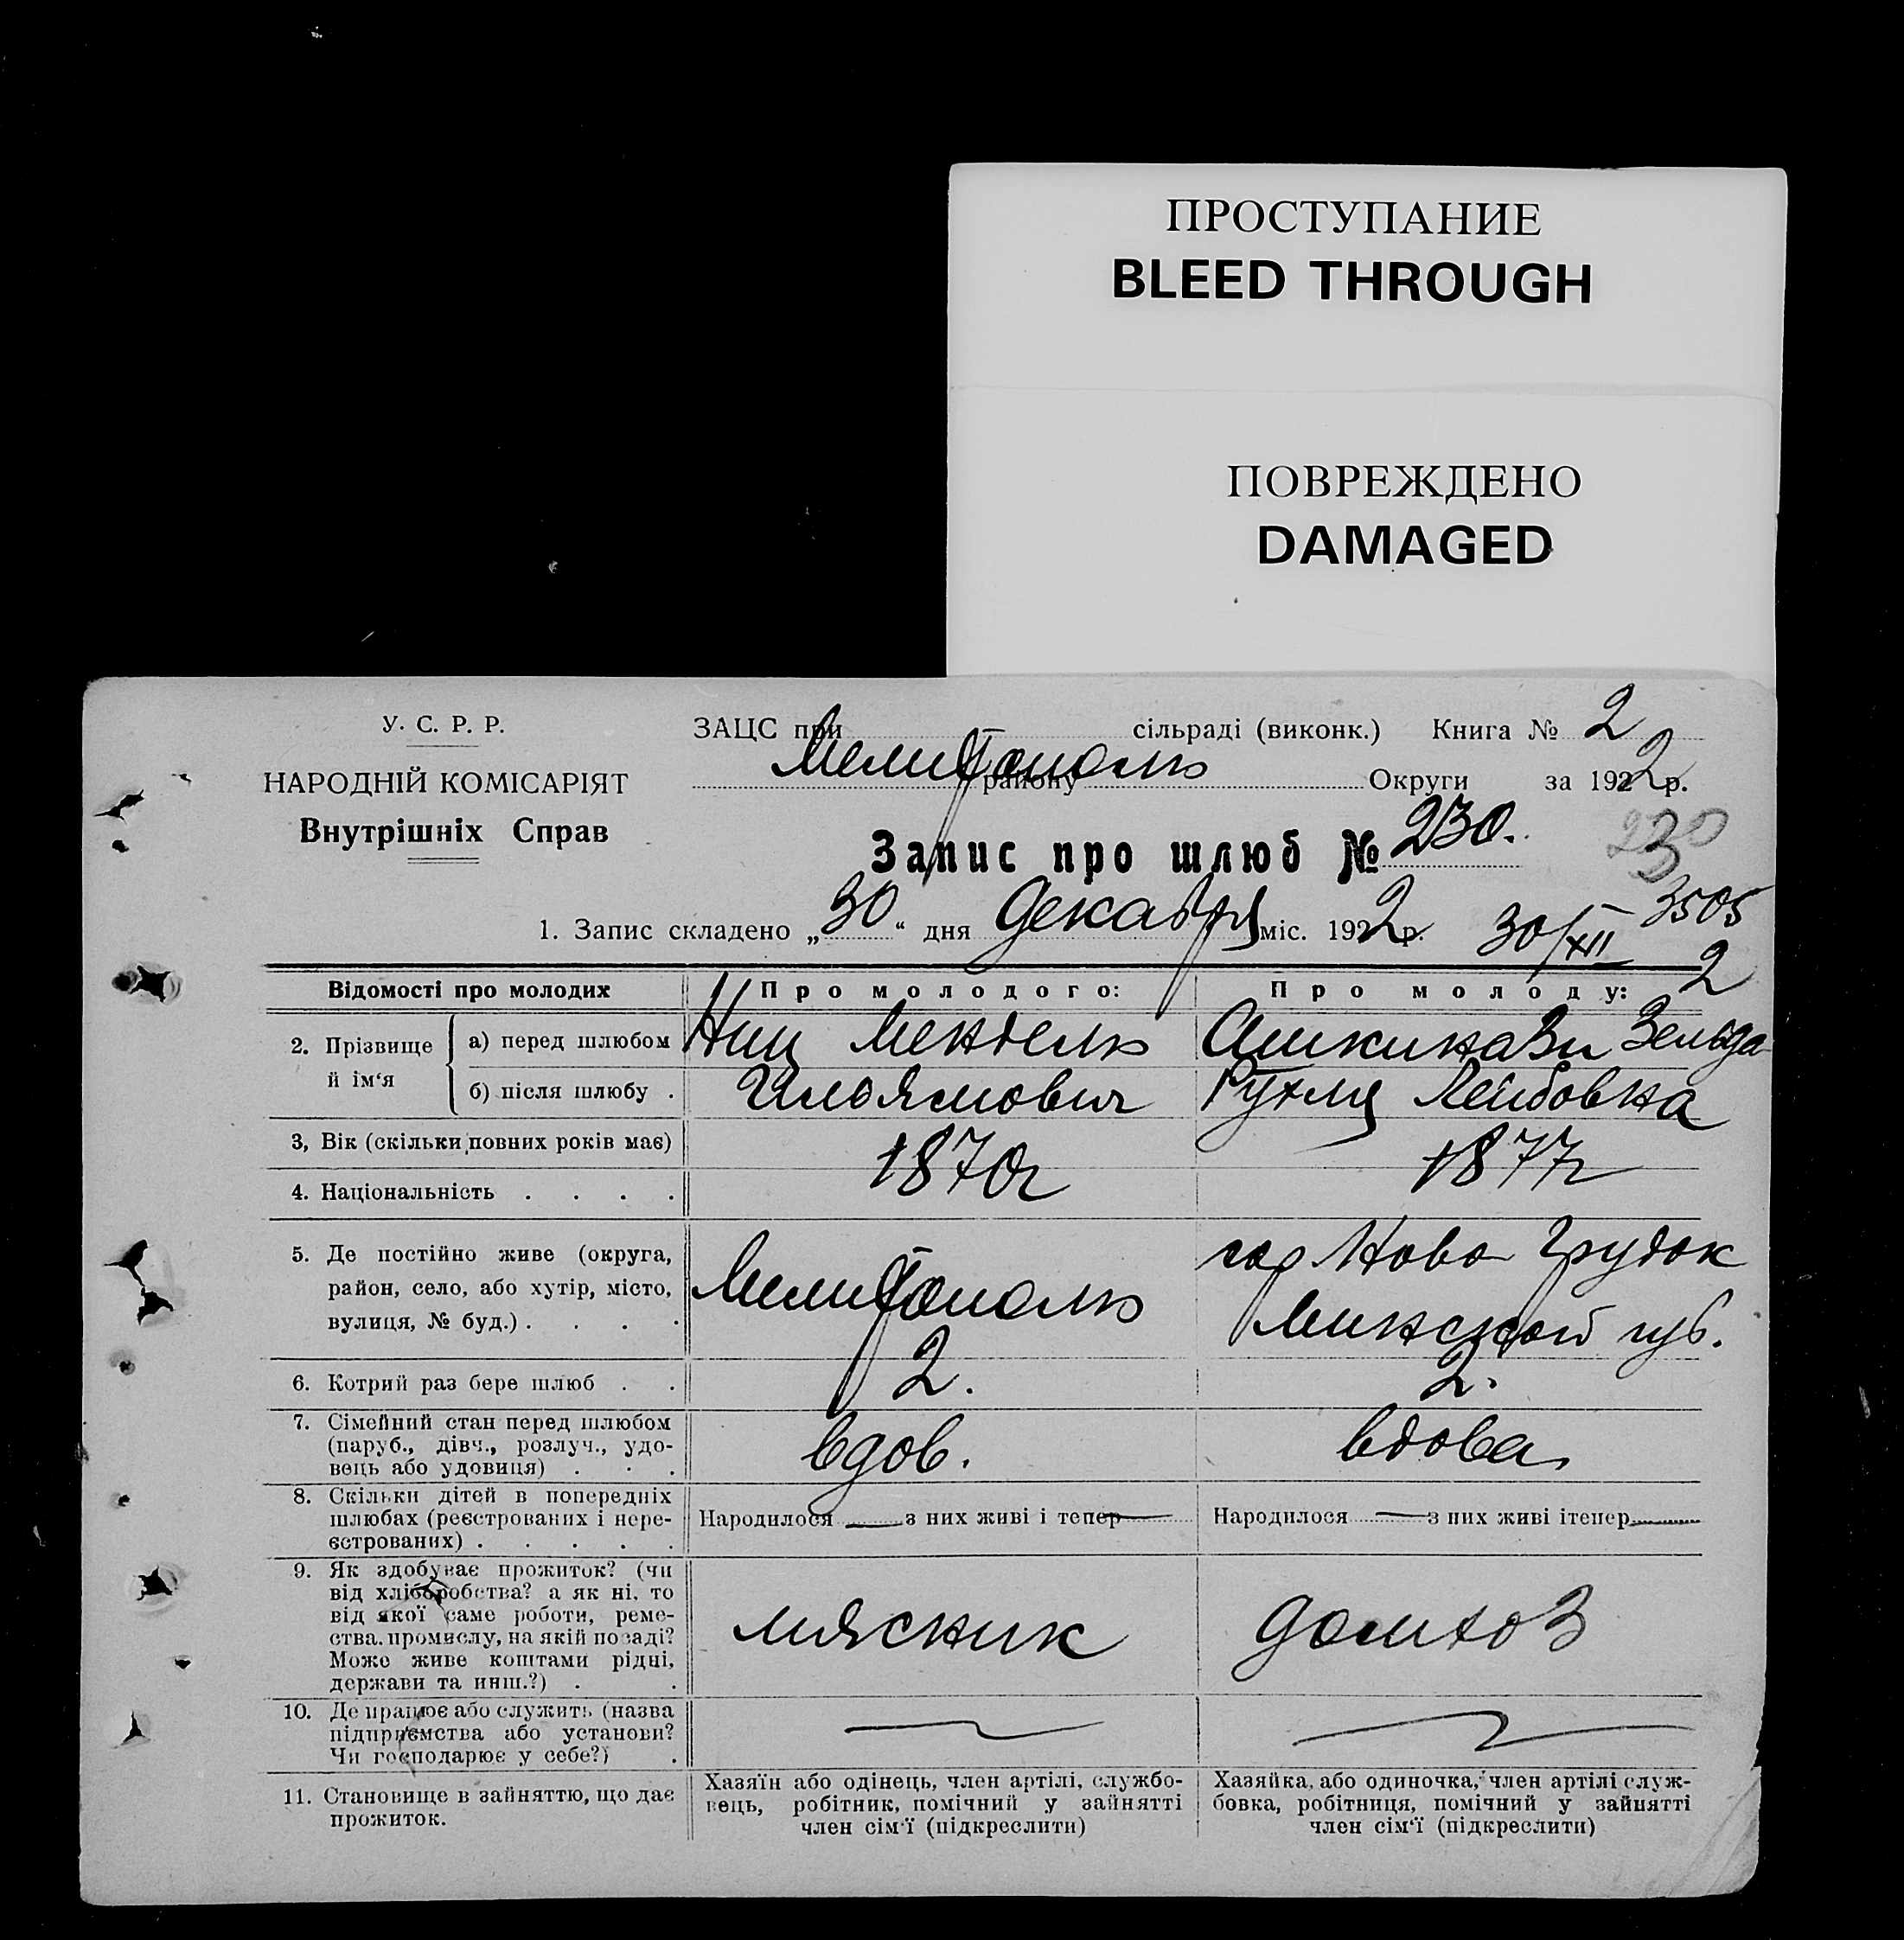 ПРОСТУПАНИЕ
BLEED THROUGH
ПОВРЕЖДЕНО
DAMAGED
У. С. Р. Р.
НАРОДНІЙ КОМІСАРІЯТ
Внутрішніх Справ
ЗАЦС при сільраді (виконк.) Книга № 2
Мелитополь
району Округи за 1922 р.
Запис про шлюб № 230.
230
1. Запис складено „30“ дня декабря міс. 1922 р. 30/XII 3505
2
Відомості про молодих
Про молодого:
Про молоду:
2. Прізвище й ім‘я
а) перед шлюбом
б) після шлюбу .
Ниц Мендель
Ашкинази Зельда
Рухля Лейбовна
3, Вік (скільки повних років має)
1870г
1877г
4. Національність . . . .
5. Де постійно живе (округа,
район, село, або хутір, місто,
вулиця, № буд.) . . . .
Мелитополь
гор Ново Грудок
Минской губ.
6. Котрий раз бере шлюб . .
2.
2.
7. Сімейний стан перед шлюбом
(паруб., дівч., розлуч., удо-
вець або удовиця) . . .
вдов.
вдова
8. Скільки дітей в попередніх
шлюбах (реєстрованих і нере-
єстрованих) . . . . .
Народилося — з них живі і тепер —
Народилося — з них живі ітепер
9. Як здобуває прожиток? (чи
від хліборобства? а як ні, то
від якої саме роботи, реме-
ства, промислу, на якій посаді?
Може живе коштами рідні,
держави та инш.?) . .
мясник
домхоз
10. Де працює або служить (назва
підприємства або установи?
Чи господарює у себе?) .
11. Становище в зайняттю, що дає
прожиток.
Хазяїн або одінець, член артілі, службо-
вець, робітник, помічний у зайнятті
член сім‘ї (підкреслити)
Хазяйка, або одиночка, член артілі служ-
бовка, робітниця, помічний у зайнятті
член сім‘ї (підкреслити)